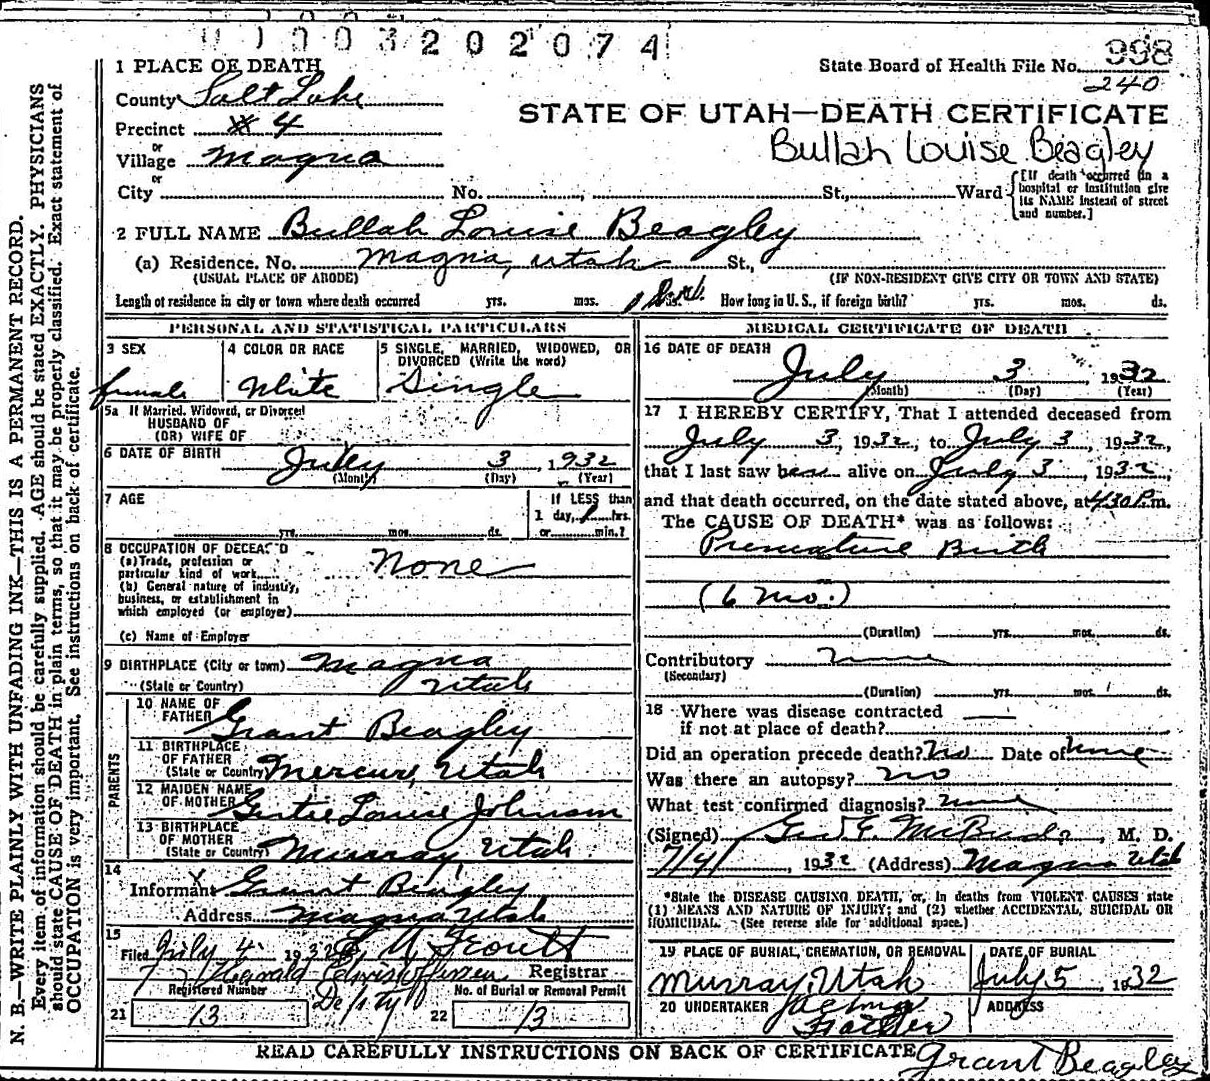 01003202074
998
State Board of Health File No.
240
1 PLACE OF DEATH
County Salt Lake
STATE OF UTAH—DEATH CERTIFICATE
Precinct #4
Bullah Louise Beagley
or
Village Magna
or
City No. St., Ward
[If death occurred in a
hospital or institution give
its NAME instead of street
and number.]
2 FULL NAME Bullah Louise Beagley
(a) Residence. No. Magna, Utah St.,
(USUAL PLACE OF ABODE) (IF NON-RESIDENT GIVE CITY OR TOWN AND STATE)
Length of residence in city or town where death occurred yrs. mos. How long in U. S., if foreign birth? yrs. mos. ds.
PERSONAL AND STATISTICAL PARTICULARS
3 SEX
female
4 COLOR OR RACE
White
5 SINGLE, MARRIED, WIDOWED, OR
DIVORCED (Write the word)
Single
5a If Married, Widowed, or Divorced
HUSBAND OF
(OR) WIFE OF
6 DATE OF BIRTH July 3, 1932
(Month) (Day) (Year)
7 AGE
yrs. mos. ds.
If LESS than
1 day, 1 hrs.
or min.?
8 OCCUPATION OF DECEASED
(a) Trade, profession or
particular kind of work None
(b) General nature of industry,
business, or establishment in
which employed (or employer)
(c) Name of Employer
9 BIRTHPLACE (City or town) Magna
(State or Country) Utah
PARENTS
10 NAME OF
FATHER Grant Beagley
11 BIRTHPLACE
OF FATHER
(State or Country) Mercur, Utah
12 MAIDEN NAME
OF MOTHER Gertie Louise Johnson
13 BIRTHPLACE
OF MOTHER
(State or Country) Murray, Utah
14
Informant Grant Beagley
Address Magna Utah
15
Filed July 4 1932
Registrar
Deputy
Registered Number
21 13
No. of Burial or Removal Permit
22 13
MEDICAL CERTIFICATE OF DEATH
16 DATE OF DEATH
July 3, 1932
(Month) (Day) (Year)
17 I HEREBY CERTIFY, That I attended deceased from
July 3, 1932, to July 3, 1932,
that I last saw alive on July 3, 1932,
and that death occurred, on the date stated above, at 4:30 P.m.
The CAUSE OF DEATH* was as follows:
Premature Birth
(6 mo.)
(Duration) yrs. mos. ds.
Contributory none
(Secondary)
(Duration) yrs. mos. ds.
18 Where was disease contracted
if not at place of death?
Did an operation precede death? No Date of none
Was there an autopsy? no
What test confirmed diagnosis? none
(Signed) M. D.
7/4/, 1932 (Address) Magna Utah
*State the DISEASE CAUSING DEATH, or, in deaths from VIOLENT CAUSES state
(1) MEANS AND NATURE OF INJURY; and (2) whether ACCIDENTAL, SUICIDAL OR
HOMICIDAL. (See reverse side for additional space.)
19 PLACE OF BURIAL, CREMATION, OR REMOVAL
Murray, Utah
DATE OF BURIAL
July 5, 1932
20 UNDERTAKER
Father
ADDRESS
READ CAREFULLY INSTRUCTIONS ON BACK OF CERTIFICATE
Grant Beagley
N. B.—WRITE PLAINLY WITH UNFADING INK—THIS IS A PERMANENT RECORD.
Every item of information should be carefully supplied. AGE should be stated EXACTLY. PHYSICIANS
should state CAUSE OF DEATH in plain terms, so that it may be properly classified. Exact statement of
OCCUPATION is very important. See instructions on back of certificate.